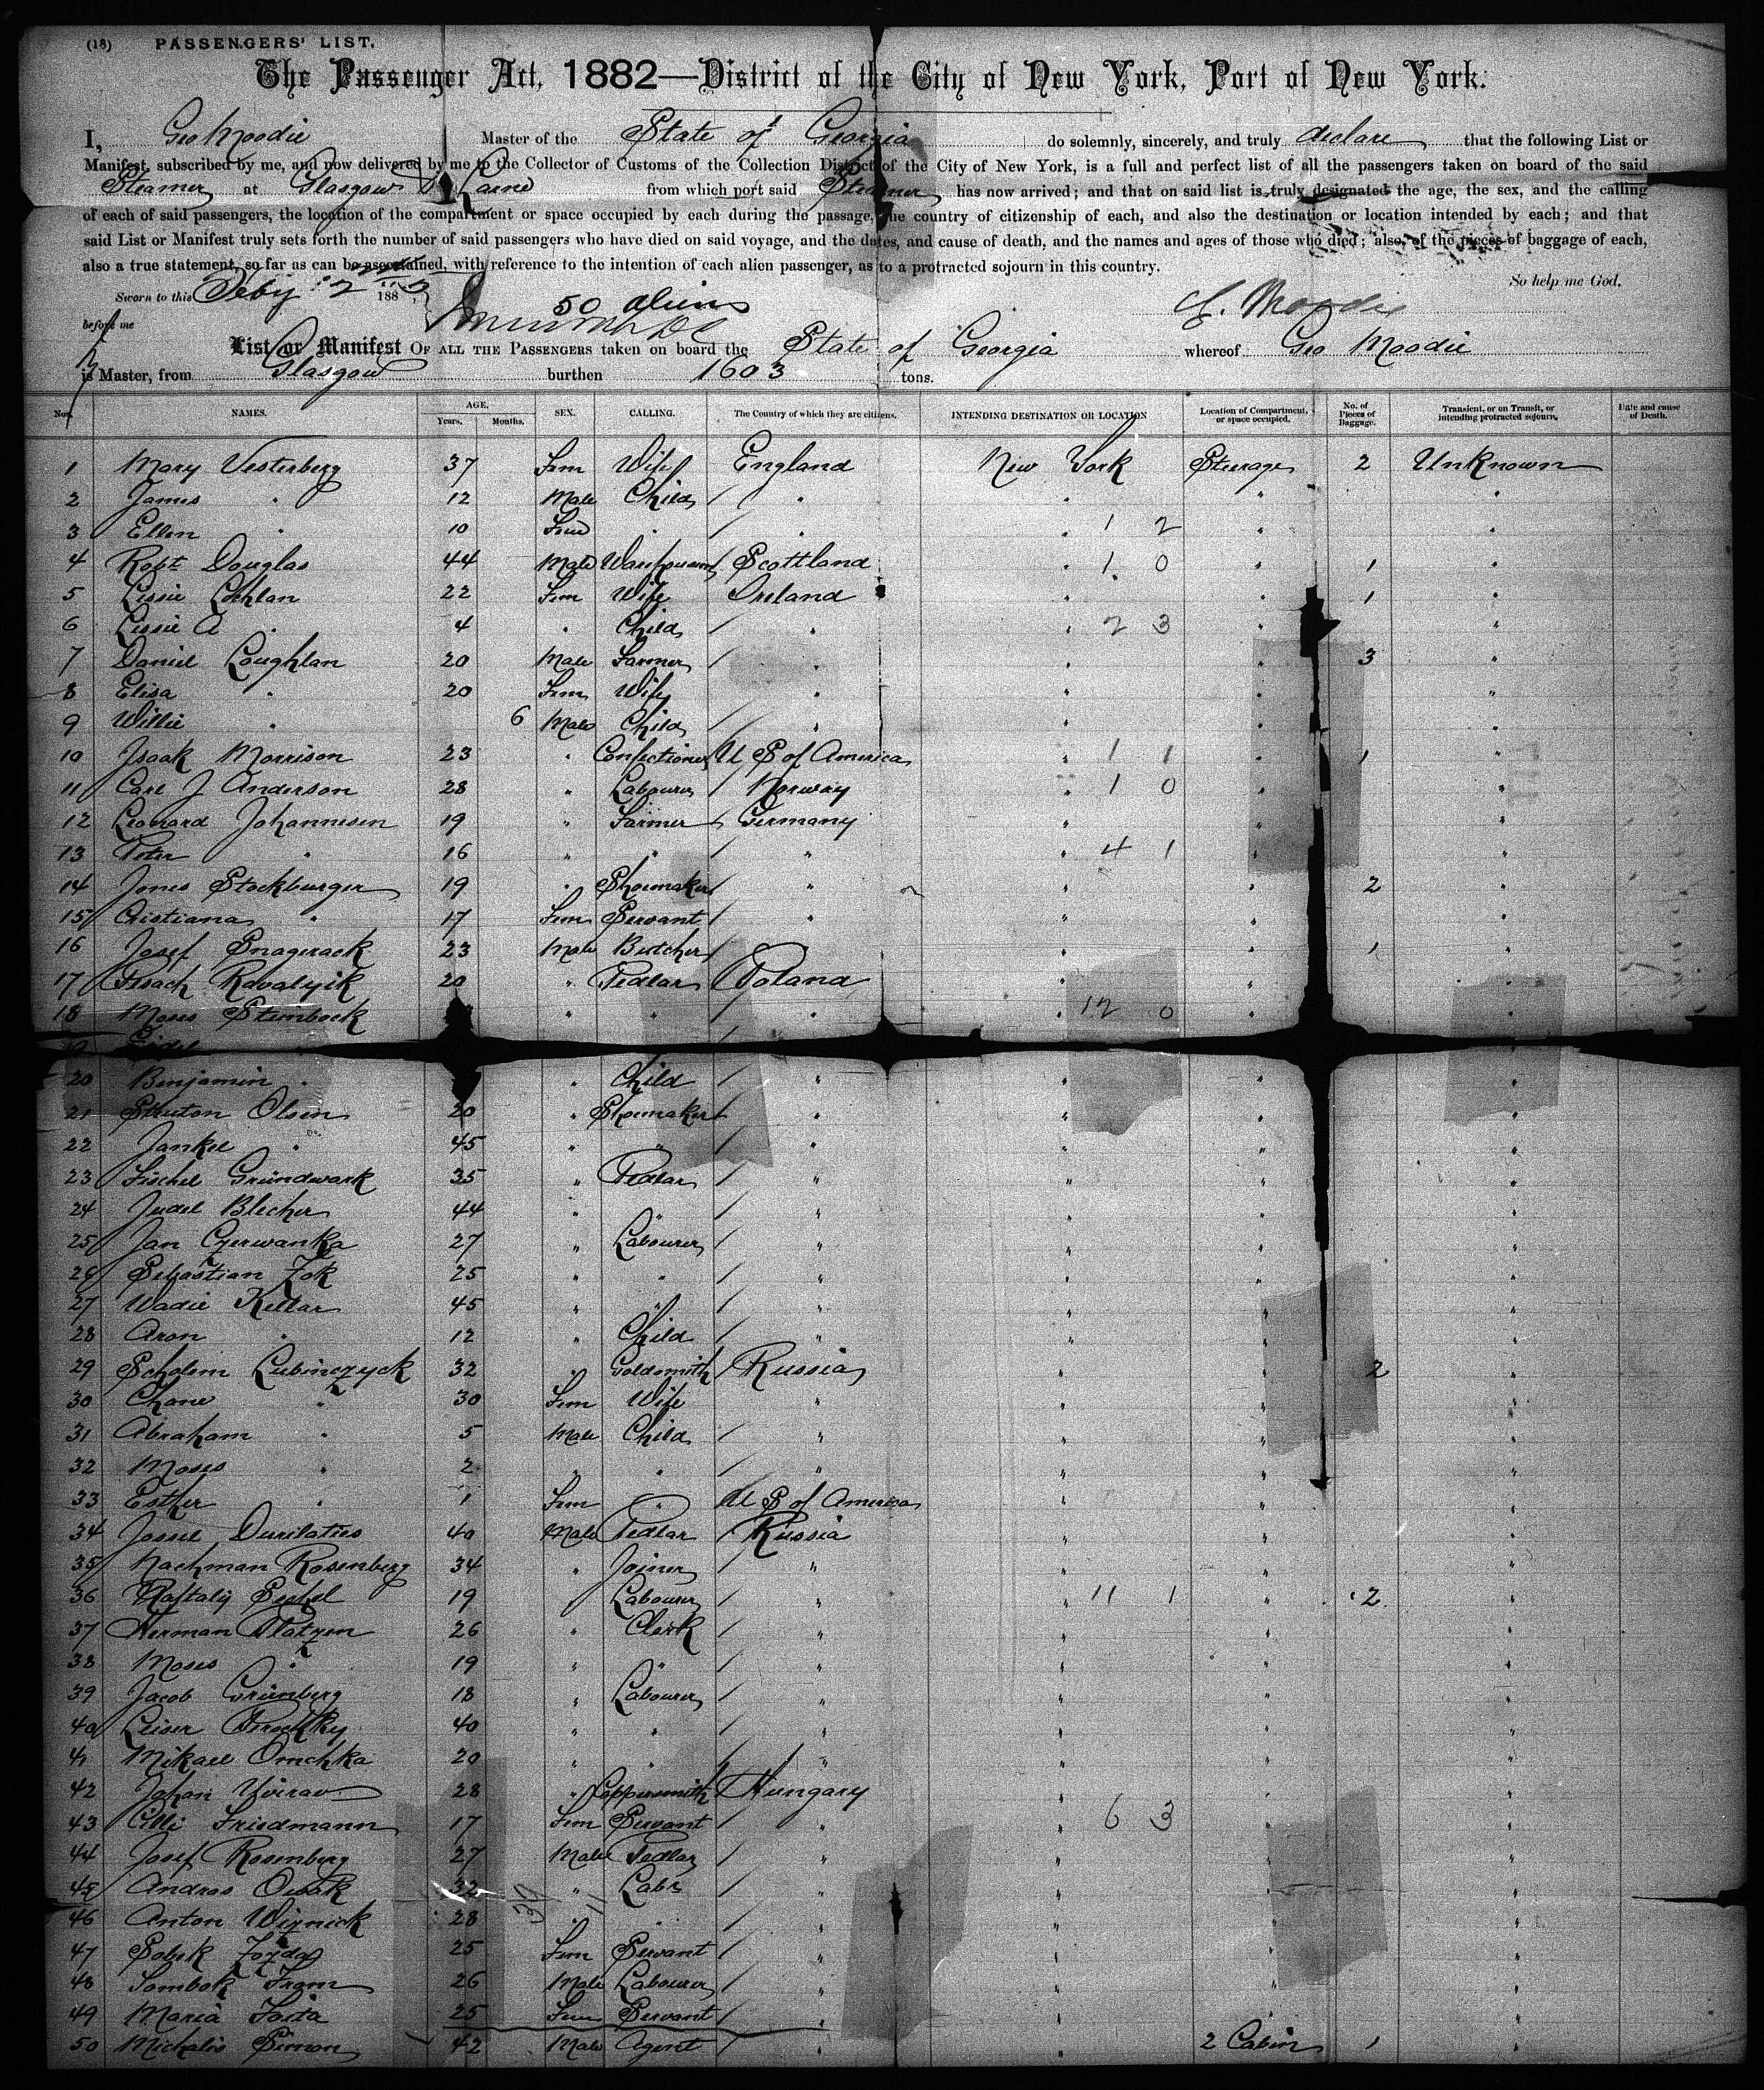 (18) PASSENGERS' LIST.
The Passenger Act, 1882—District of the City of New York, Port of New York.
I, Geo Moodie Master of the State of Georgia do solemnly, sincerely, and truly declare that the following List or
Manifest, subscribed by me, and now delivered by me to the Collector of Customs of the Collection District of the City of New York, is a full and perfect list of all the passengers taken on board of the said
Steamer at Glasgow & Larne from which port said Steamer has now arrived; and that on said list is truly designated the age, the sex, and the calling
of each of said passengers, the location of the compartment or space occupied by each during the passage, the country of citizenship of each, and also the destination or location intended by each; and that
said List or Manifest truly sets forth the number of said passengers who have died on said voyage, and the dates, and cause of death, and the names and ages of those who died; also, of the pieces of baggage of each,
also a true statement, so far as can be ascertained, with reference to the intention of each alien passenger, as to a protracted sojourn in this country.
So help me God.
Sworn to this Feby 2 188
50 aliens
G. Moodie
before me
List or Manifest OF ALL THE PASSENGERS taken on board the State of Georgia whereof Geo Moodie
is Master, from Glasgow burthen 1603 tons.
Nos. NAMES. AGE. Years. Months. SEX. CALLING. The Country of which they are citizens. INTENDING DESTINATION OR LOCATION Location of Compartment, or space occupied. No. of Pieces of Baggage. Transient, or on Transit, or intending protracted sojourn. Date and cause of Death.
1 Mary Vesterberg 37 Fem Wife England New York Steerage 2 Unknown
2 James " 12 Male Child / " " " "
3 Ellen " 10 Fem " / " " 1 2 " "
4 Robt Douglas 44 Male Warehouseman / Scottland " 1 0 " 1 "
5 Lissie Cochlan 22 Fem Wife Ireland " " 1 "
6 Lissie A " 4 " Child / " " 2 3 " "
7 Daniel Coughlan 20 Male Farmer / " " " 3 "
8 Elisa " 20 Fem Wife " " " "
9 Willie " 6 Male Child / " " " "
10 Isaak Morrison 23 " Confectioner U S of America " 1 1 1 "
11 Carl J Anderson 28 " Labourer / Norway " 1 0 " "
12 Leonard Johannesen 19 " Farmer / Germany " " "
13 Peter " 16 " " / " " 4 1 "
14 Jones Stockburger 19 " Shoemaker / " " " 2 "
15 Cristiana " 17 Fem Servant / " " " "
16 Josef Snagerack 23 Male Butcher / " " " 1 "
17 Isach Kavalyik 20 " Pedlar Poland " " "
18 Moses Steinbock " " / " " 12 0 " "
20 Benjamin " " Child / " " " "
21 Olsen 20 " Shoemaker / " " " "
22 Jankel " 45 " " / " " " "
23 Fischel Gründwark 35 " Pedlar / " " " "
24 Judel Blecher 44 " " / " " " "
25 Jan Czerwanka 27 " Labourer / " " " "
26 Sebastian Zok 25 " " / " " " "
27 Wadie Kellar 45 " " / " " " "
28 Aron " 12 " Child / " " " "
29 Scholem Lubinczyck 32 " Goldsmith / Russia " " 2 "
30 Chane " 30 Fem Wife " " " "
31 Abraham " 5 Male Child / " " " "
32 Moses " 2 " " / " " " "
33 Esther " 1 Fem " U S of America " " "
34 Jossel 40 Male Pedlar / Russia " " "
35 Nachman Rosenberg 34 " Joiner / " " " "
36 Naftaly 19 " Labourer / " " 11 1 " 2 "
37 Herman Platzen 26 " Clerk / " " " "
38 Moses " 19 " " / " " " "
39 Jacob Grünberg 18 " Labourer / " " " "
40 Leiser 40 " " / " " " "
41 Mikael Omchka 20 " " / " " " "
42 Johan 28 " Coppersmith / Hungary " " "
43 Cilli Friedmann 17 Fem Servant / " " 6 3 " "
44 Josef Rosenberg 27 Male Pedlar / " " " "
45 Andras 32 " Labr / " " " "
46 Anton Wiznick 28 " " / " " " "
47 Sobek 25 Fem Servant / " " " "
48 Sombok Fram 26 Male Labourer / " " " "
49 Maria 25 Fem Servant / " " " "
50 Michalis Simon 42 Male Agent / " " 2 Cabin 1 "